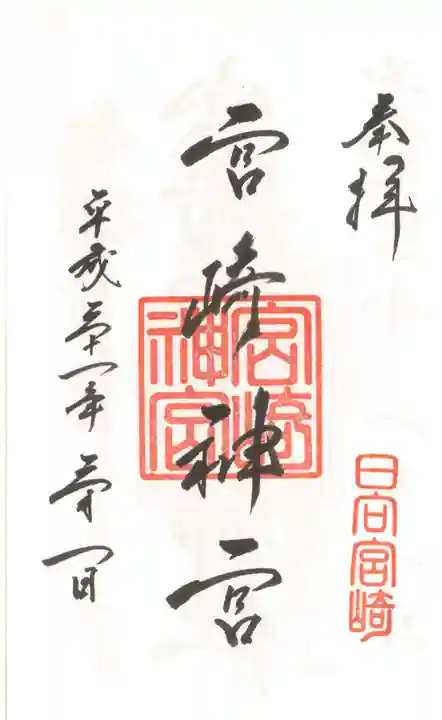 奉拝
日向宮崎
宮崎神宮
宮崎神宮
平成三十一年